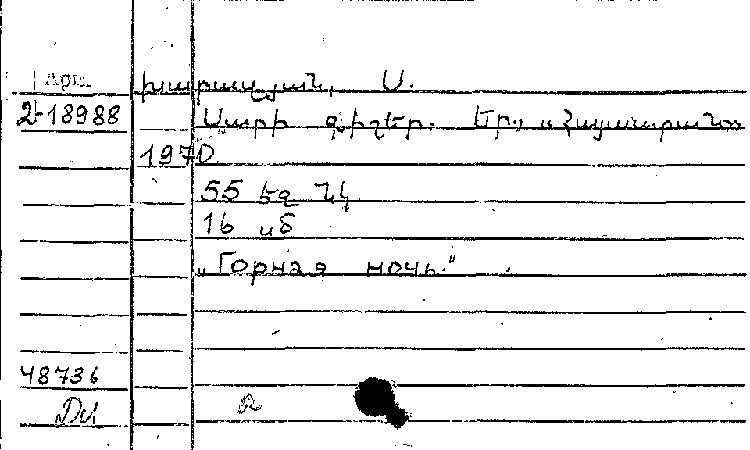 Խարազյան, Ս.
Զ-18988 Սարի գիշեր. Եր., «Հայաստան»
1970.
55 եզ նկ.
16 սմ
„Горная ночь."
48736